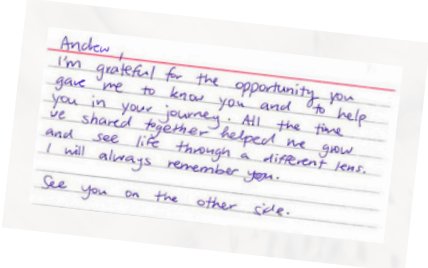 Andrew,
I'm grateful for the opportunity you
gave me to know you and to help
you in your journey. All the time
ve shared together helped me grow
and see life through a different lens.
I will always remember you.
See you on the other side.